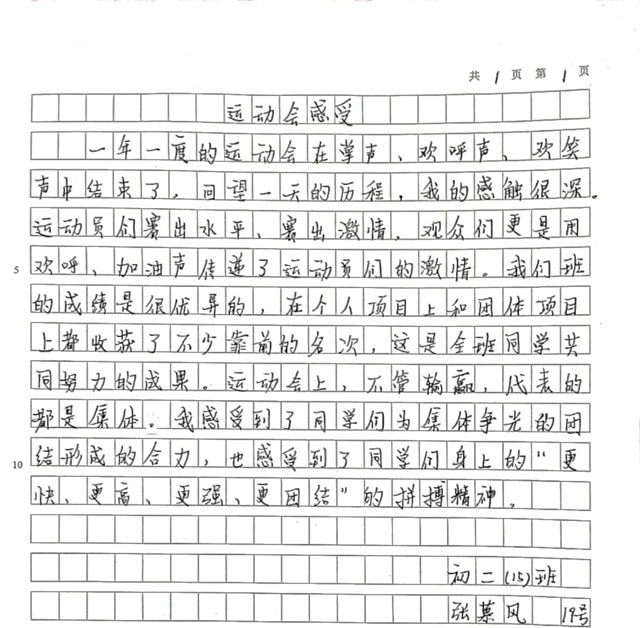 共1页第1页
运动会感受
一年一度的运动会在掌声、欢呼声、欢笑
声中结束了，回望一天的历程，我的感触很深。
运动员们赛出水平、赛出激情，观众们更是用
5 欢呼、加油声传递了运动员们的激情。我们班
的成绩是很优异的，在个人项目上和团体项目
上都收获了不少靠前的名次，这是全班同学共
同努力的成果。运动会上，不管输赢，代表的
都是集体。我感受到了同学们为集体争光的团
10 结形成的合力，也感受到了同学们身上的“更
快、更高、更强、更团结”的拼搏精神。
初二（15）班
张慕风 19号